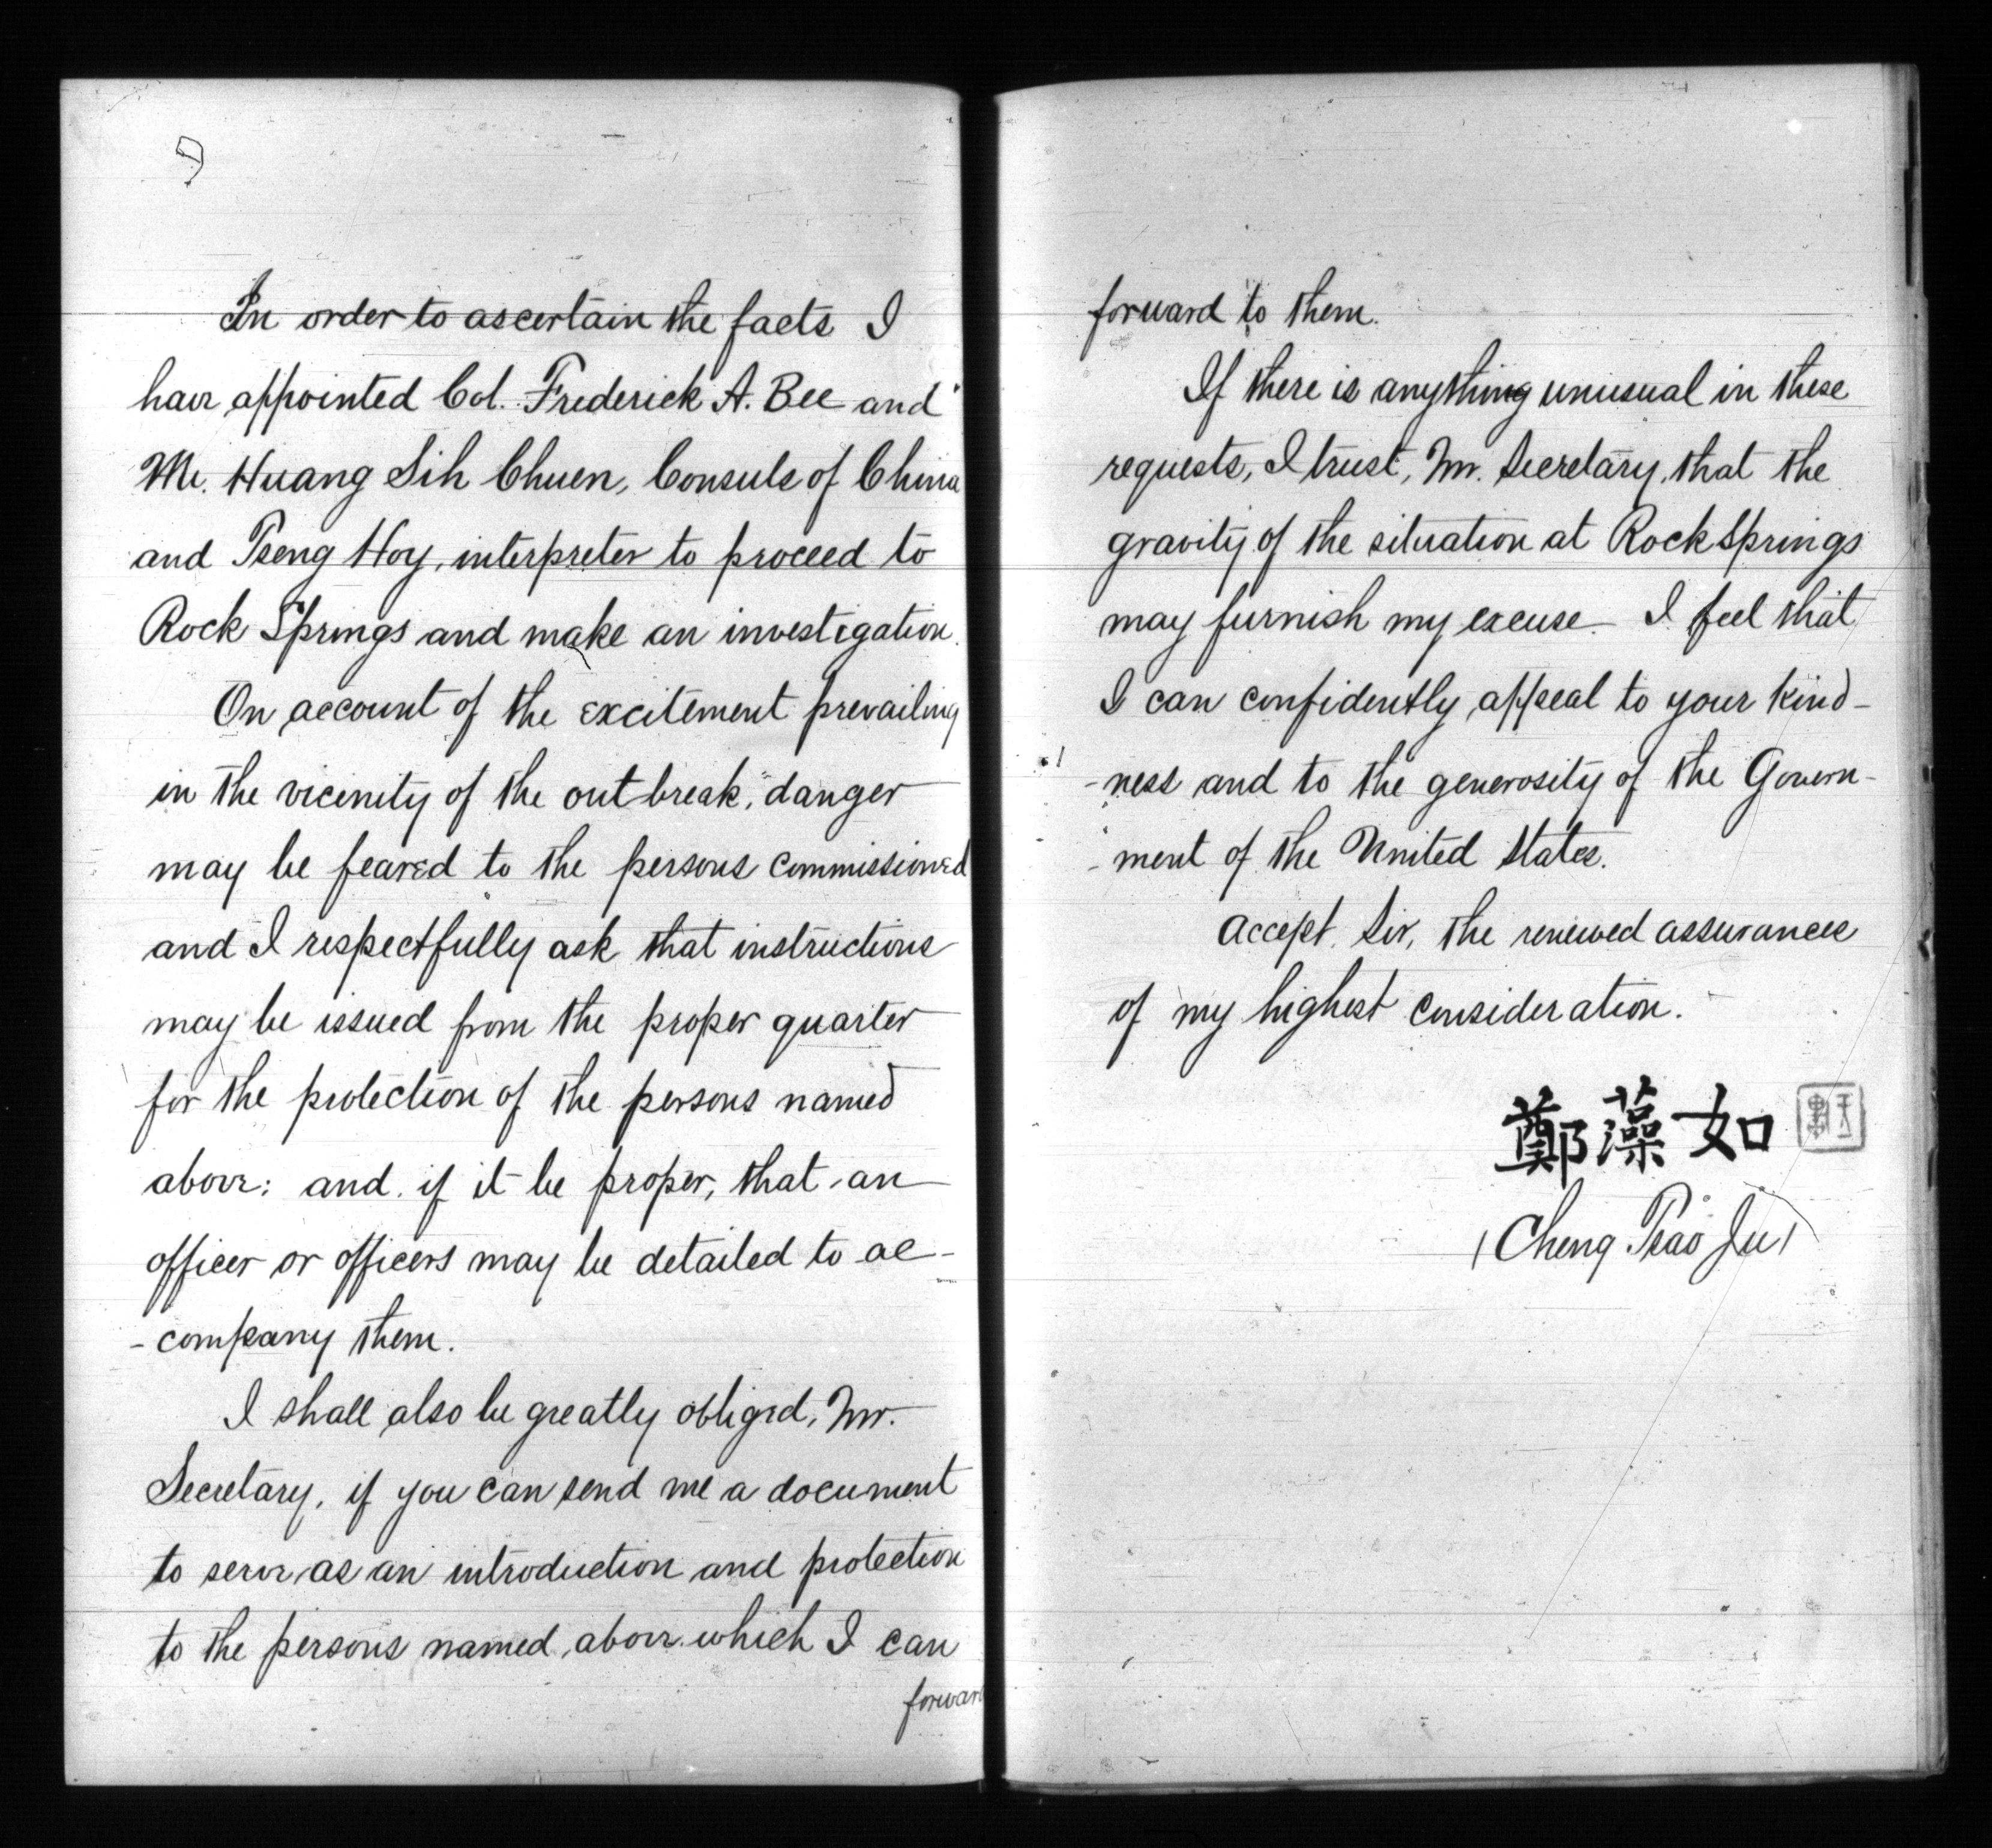 In order to ascertain the facts I
have appointed Col. Frederick A. Bee and
Mr. Huang Sih Chuen, Consuls of China
and Tseng Hoy, interpreter to proceed to
Rock Springs and make an investigation.
On account of the excitement prevailing
in the vicinity of the outbreak, danger
may be feared to the persons commissioned
and I respectfully ask that instructions
may be issued from the proper quarter
for the protection of the persons named
above: and if it be proper, that an
officer or officers may be detailed to ac-
-company them.
I shall also be greatly obliged, Mr.
Secretary, if you can send me a document
to serve as an introduction and protection
to the persons named above which I can
forward
forward to them.
If there is anything unusual in these
requests, I trust, Mr. Secretary, that the
gravity of the situation at Rock Springs
may furnish my excuse. I feel that
I can confidently appeal to your kind-
-ness and to the generosity of the Govern-
-ment of the United States.
Accept, Sir, the renewed assurances
of my highest consideration.
鄭藻如
(Cheng Tsao Ju)